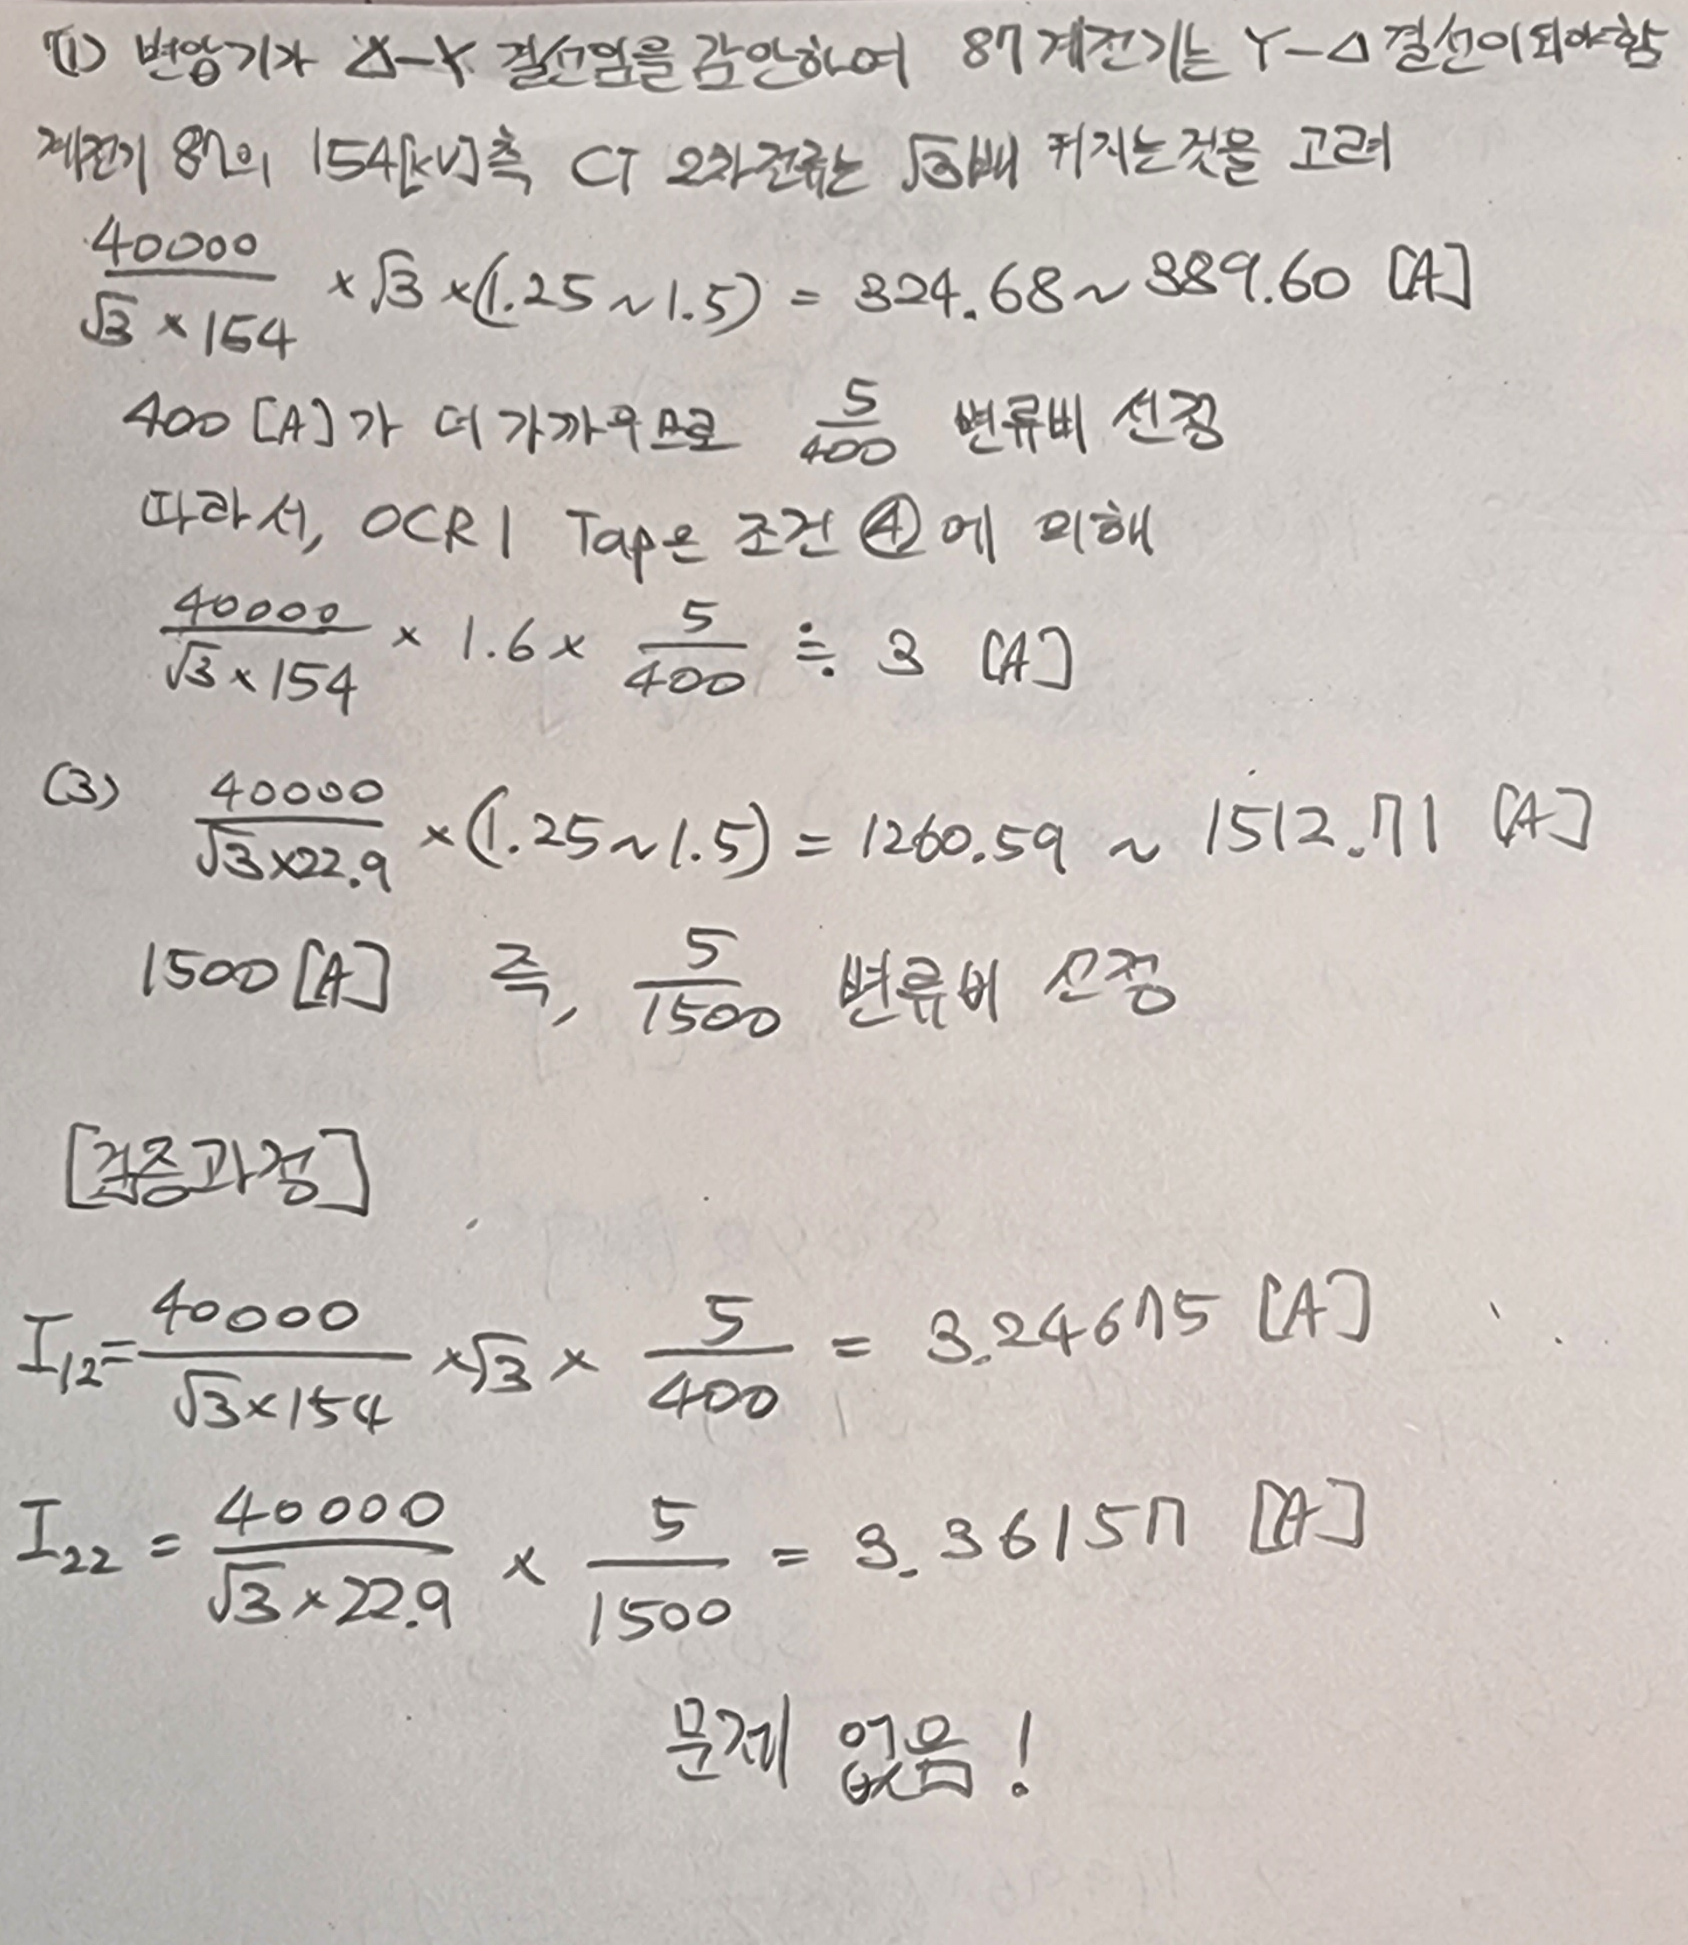 (1) 변압기가 Δ-Y 결선임을 감안하여 87계전기는 Y-Δ 결선이 되야함
계전기 87의 154[kV]측 CT 2차전류는 √3배 커지는것을 고려
40000/(√3×154) × √3 × (1.25~1.5) = 324.68 ~ 389.60 [A]
400[A]가 더 가까우므로 5/400 변류비 선정
따라서, OCR1 Tap은 조건 ④에 의해
40000/(√3×154) × 1.6 × 5/400 ≒ 3 [A]
(3) 40000/(√3×22.9) × (1.25~1.5) = 1260.59 ~ 1512.71 [A]
1500[A] 즉, 5/1500 변류비 선정
[검증과정]
I₁₂ = 40000/(√3×154) × √3 × 5/400 = 3.24675 [A]
I₂₂ = 40000/(√3×22.9) × 5/1500 = 3.36157 [A]
문제 없음!